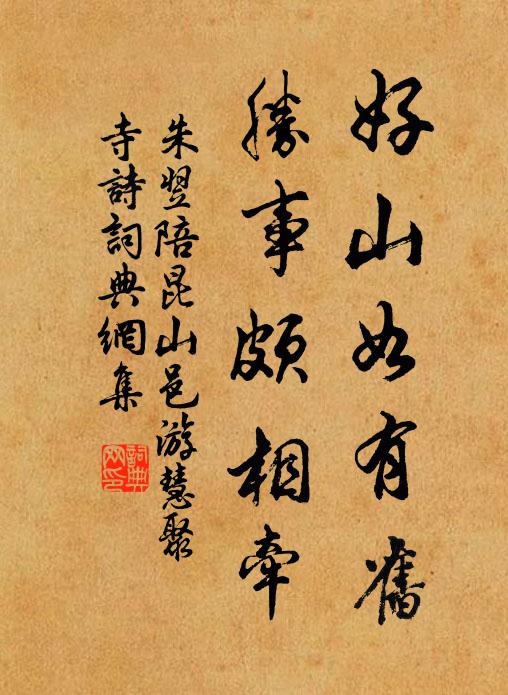 好山如有舊
勝事頗相牽
朱翌陪昆山邑游慧聚
寺詩詞典網集
詞典网印